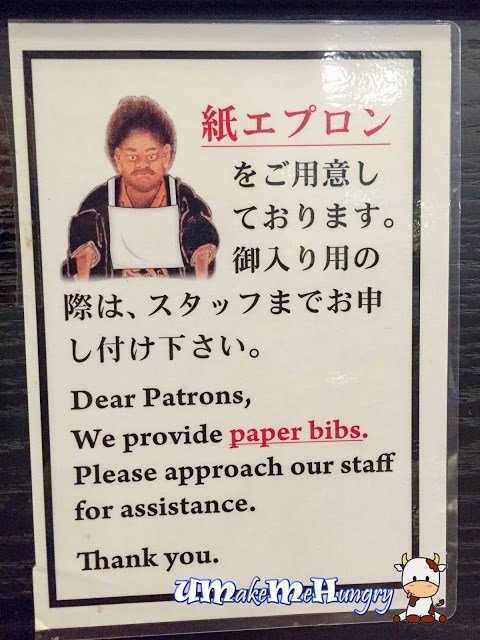 紙エプロン
をご用意し
ております。
御入り用の
際は、スタッフまでお申
し付け下さい。
Dear Patrons,
We provide paper bibs.
Please approach our staff
for assistance.
Thank you.
UMakeMeHungry